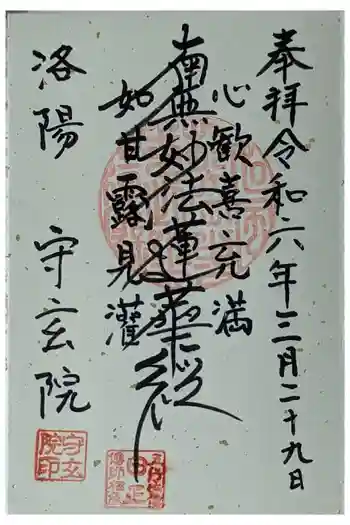 奉拝令和六年三月二十九日
心歓喜充満
南無妙法蓮華経
如甘露見灌
洛陽 守玄院
守玄
院印